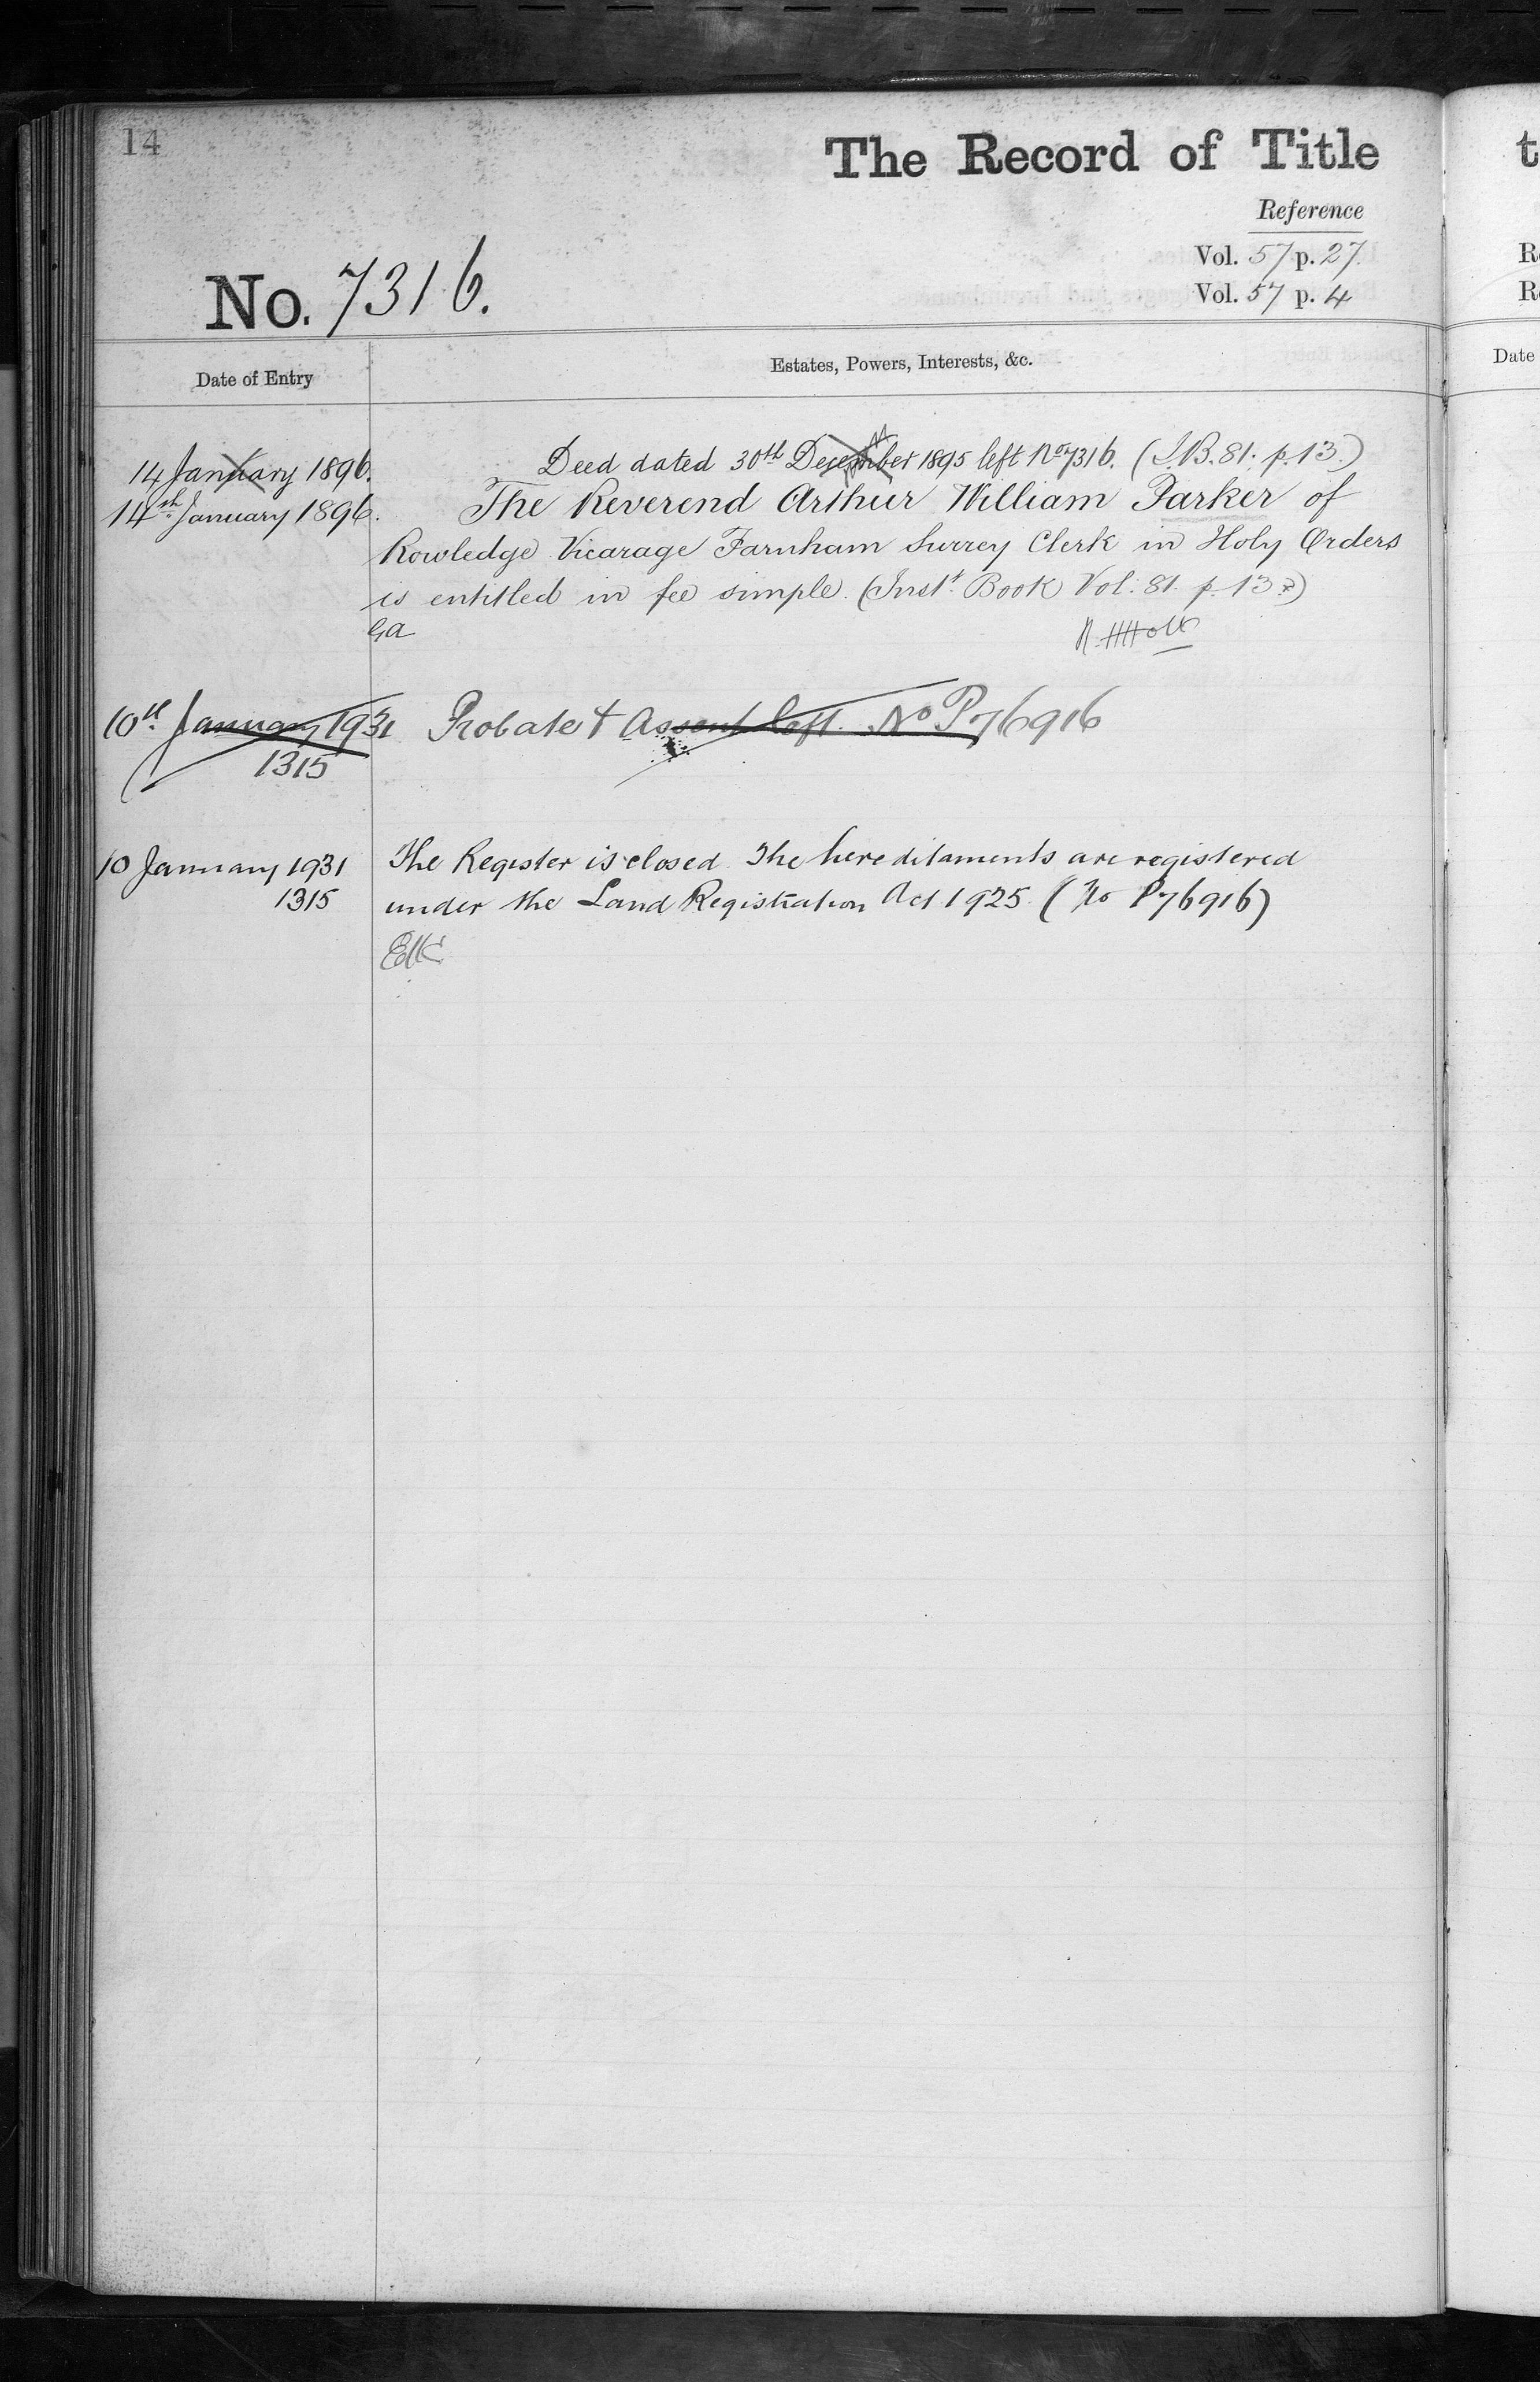 14
The Record of Title
Reference
Vol. 57 p. 27.
No. 7316.
Vol. 57 p. 4
Date of Entry
Estates, Powers, Interests, &c.
14 January 1896.
Deed dated 30th December 1895 left No 7316. (I.B. 81. p. 13.)
14th January 1896.
The Reverend Arthur William Parker of
Rowledge Vicarage Farnham Surrey Clerk in Holy Orders
is entitled in fee simple. (Inst. Book Vol: 81. p. 13.)
10th January 1931
Probate & Assent left. No P76916
1315
10 January 1931
The Register is closed. The hereditaments are registered
1315
under the Land Registration Act 1925. (No P76916)
t
R
R
Date